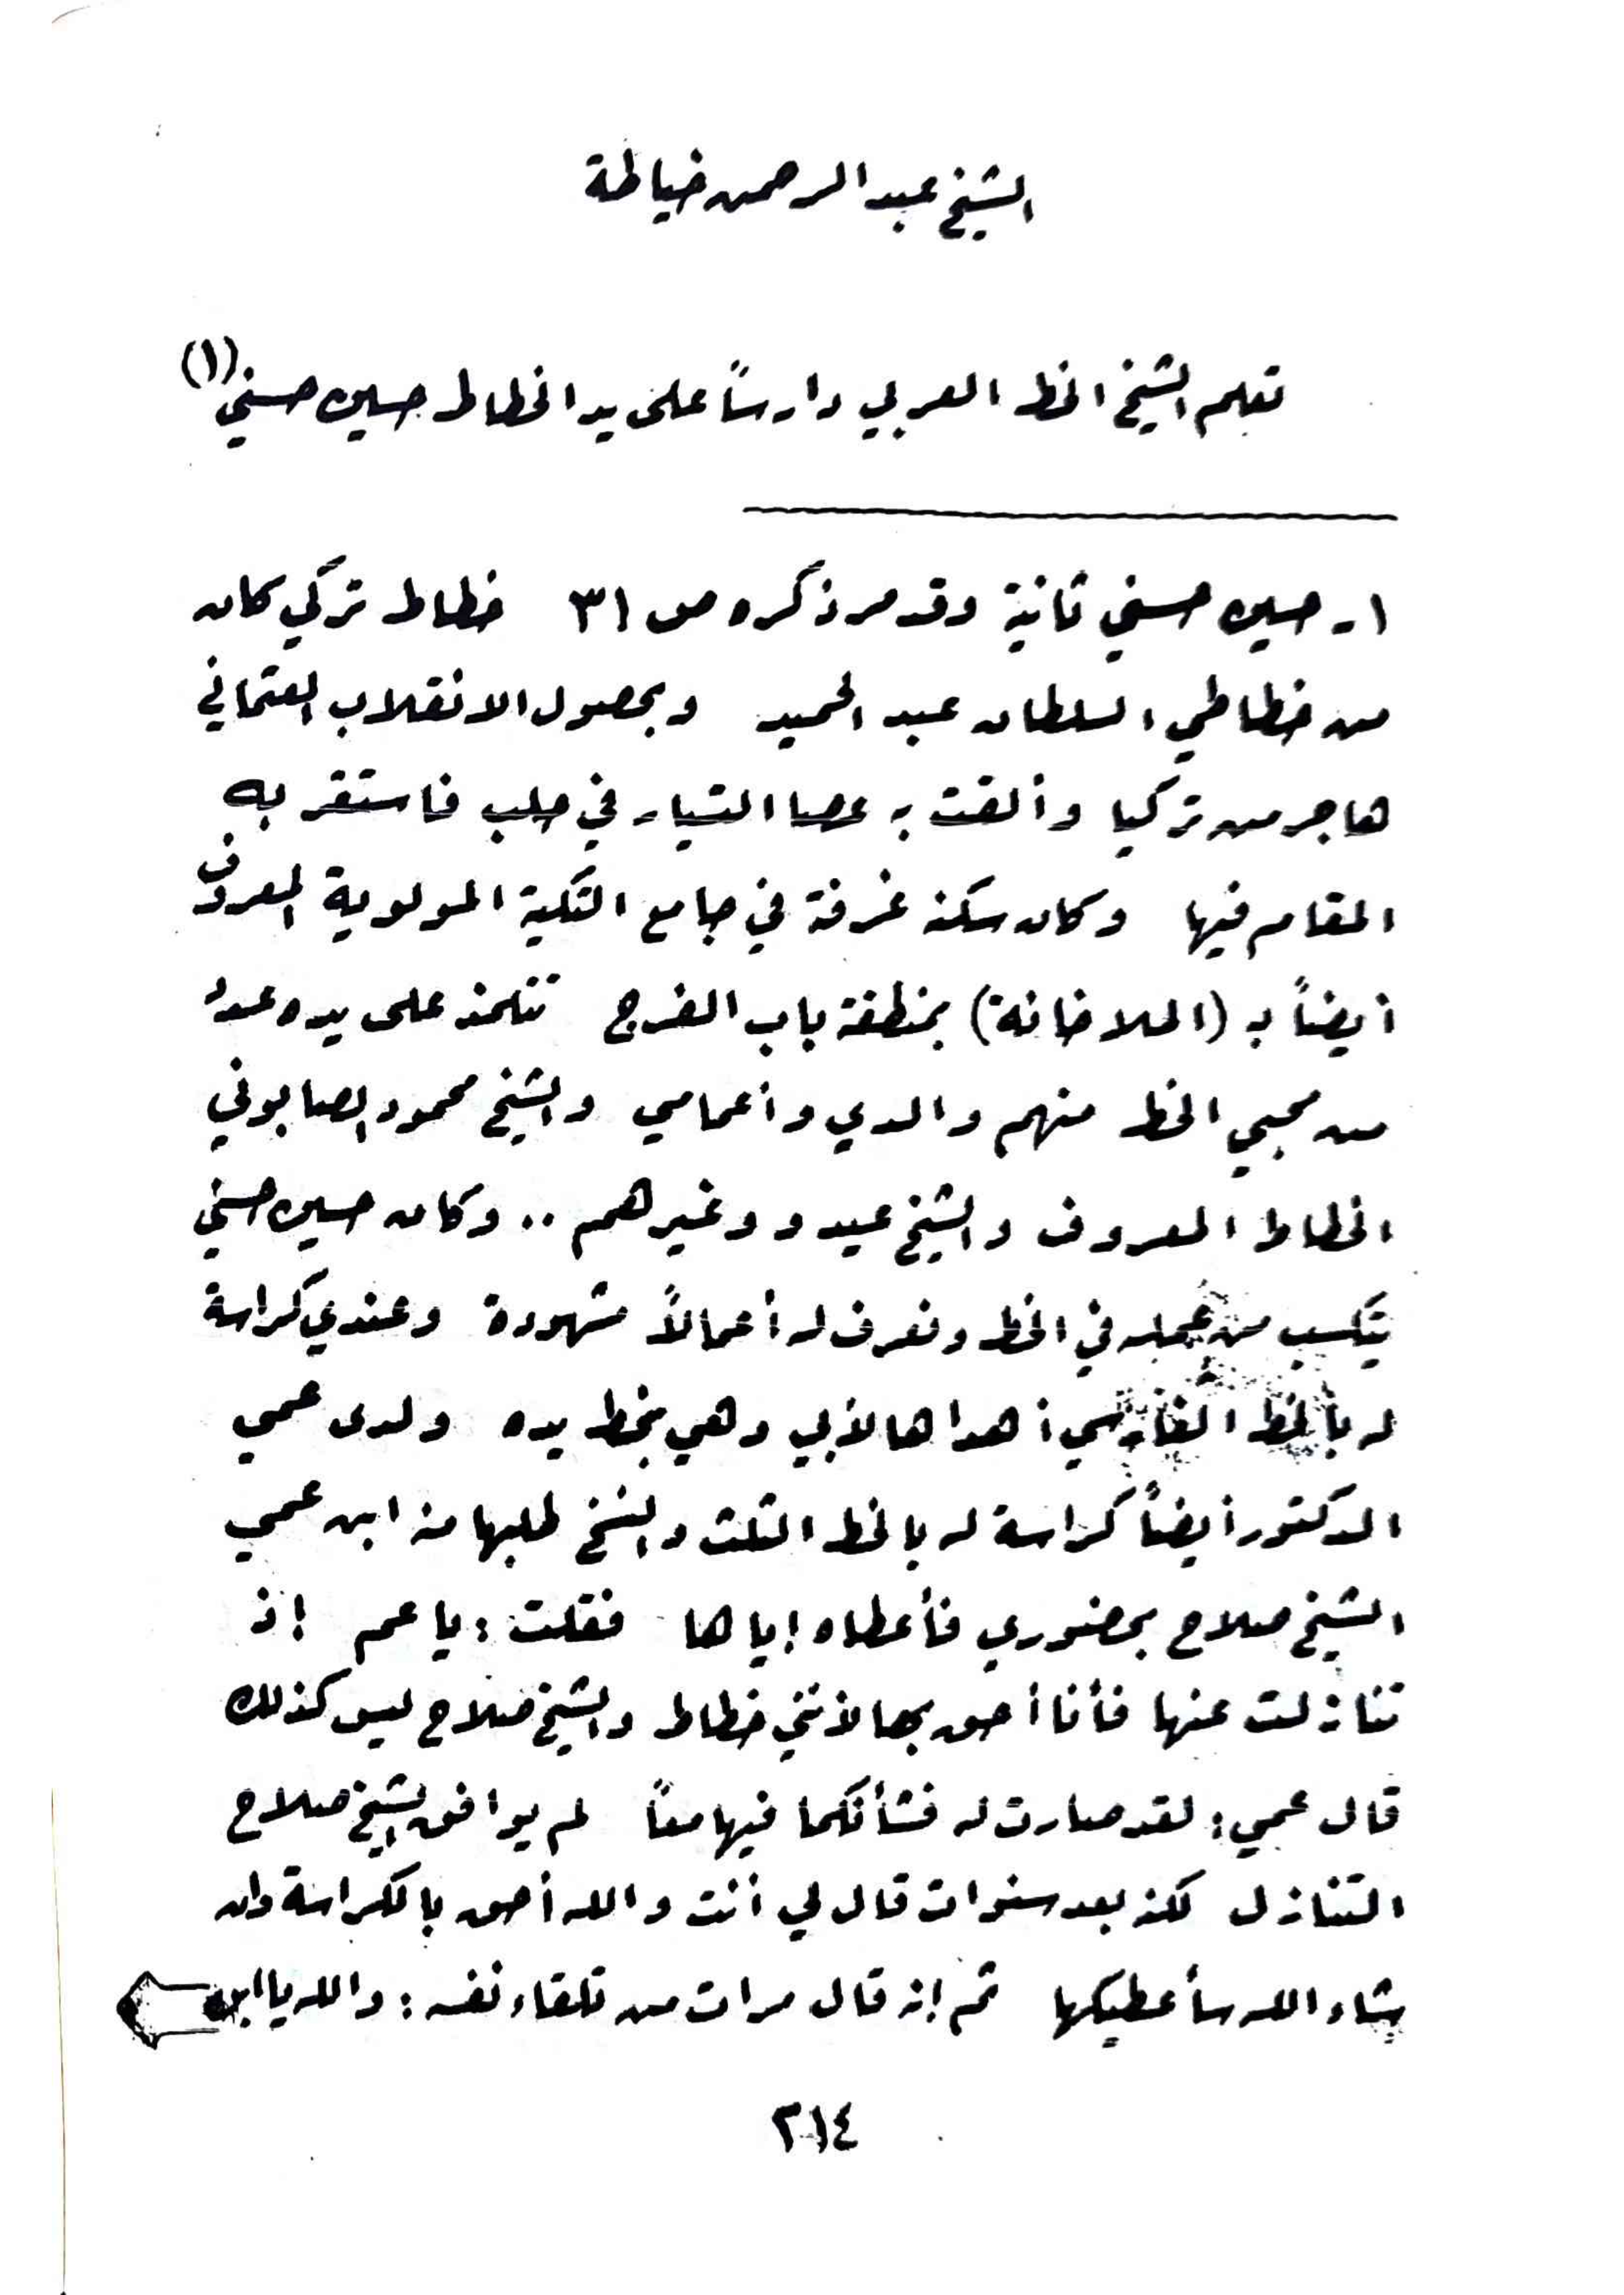 الشيخ عبد الرحمن خياطة
تعلم الشيخ الخط العربي دارساً على يد الخطاط حسين حسني (١)
١- حسين حسني ثانية وقد مر ذكره ص ٣١ خطاط تركي كان
من خطاطي السلطان عبد الحميد وبحصول الانقلاب العثماني
هاجر من تركيا وألقت به عصا التسيار في حلب فاستقر به
المقام فيها وكان سكنه غرفة في جامع التكية المولوية المعروف
أيضاً بـ (الملا خانة) بمنطقة باب الفرج تتلمذ على يده عدد
من محبي الخط منهم والدي وأعمامي والشيخ محمود الصابوني
الخطاط المعروف والشيخ عيدو وغيرهم .. وكان حسين حسني
يتكسب من عمله في الخط ونعرف له أعمالاً مشهودة وعندي كراسة
له بالخط الفارسي أهداها لأبي وهي بخط يده ولدى عمي
الدكتور أيضاً كراسة له بالخط الثلث والنسخ طلبها منه ابن عمي
الشيخ صلاح بحضوري فأعطاه إياها فقلت : يا عم إذ
تنازلت عنها فأنا أحق بها لأنني خطاط والشيخ صلاح ليس كذلك
قال عمي : لقد صارت له فشأنكما فيها معاً لم يوافق الشيخ صلاح
التنازل لكنه بعد سنوات قال لي أنت والله أحق بالكراسة وإن
شاء الله سأعطيكها ثم إنه قال مرات من تلقاء نفسه : والله يا ابن
٢١٤